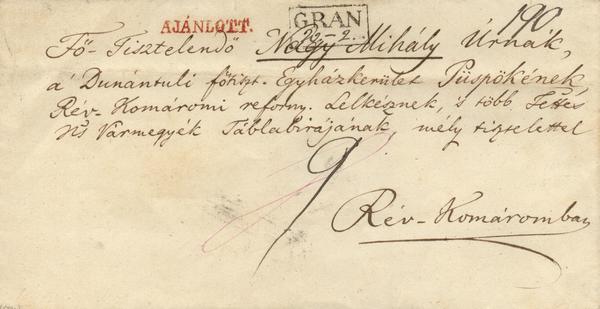 AJÁNLOTT.
GRAN
190
Fő-Tisztelendő Nagy Mihály Úrnak,
a' Dunántuli főtiszt. Egyházkerület Püspökének,
Rév-Komáromi reform. Lelkésznek, 's több Ttes
Ns Vármegyék Táblabirájának, mély tisztelettel
Rév-Komáromban